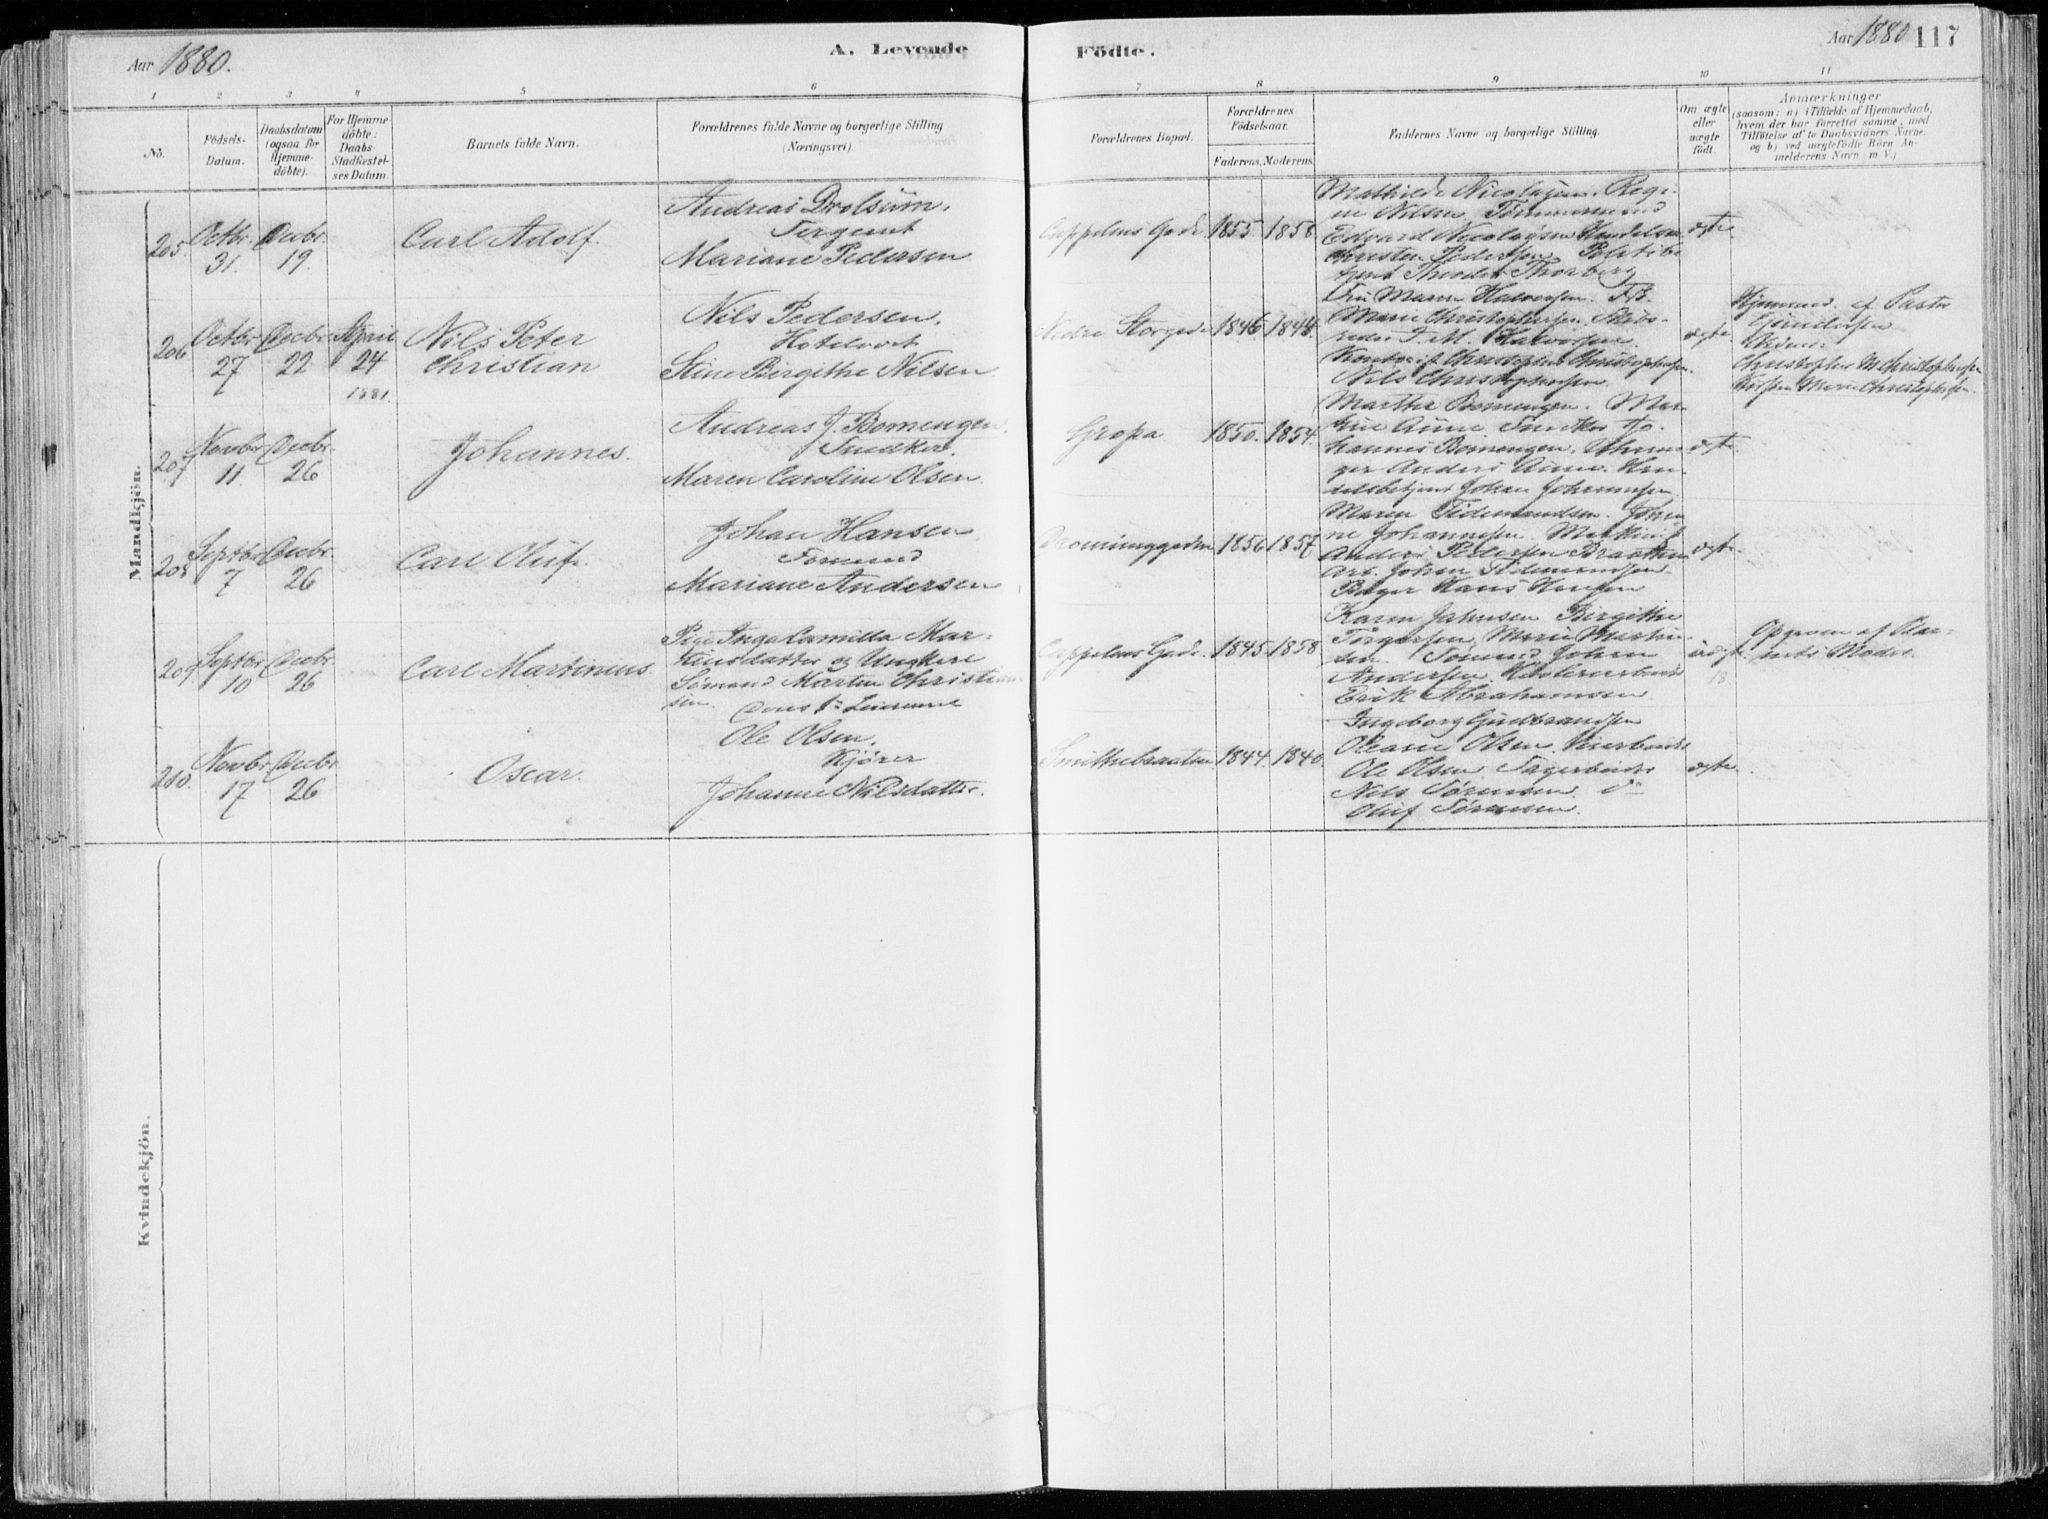 Aar 1880.
A. Levende
Födte.
Aar 1880 117
1 2 3 4 5 6 7 8 9 10 11
No.
Födsels-
Datum.
Daabsdatum
(ogsaa for
Hjemme-
döbte).
For Hjemme
döbte:
Daabs-
Stadfæstel-
ses Datum.
Barnets fulde Navn.
Forældrenes fulde Navne og borgerlige Stilling
(Næringsvei).
Forældrenes Bopæl.
Forældrenes
Födselsaar.
Faderens. Moderens.
Faddernes Navne og borgerlige Stilling.
Om ægte
eller
uægte
födt.
Anmærkninger
(saasom: a) i Tilfælde af Hjemmedaab,
hvem der har forrettet samme, med
Tilföielse af to Daabsvidners Navne.
og b) ved uægtefödte Börn An-
melderens Navn m. V.)
Mandkjön.
205.
Octbr
31.
Decbr
19.
Carl Adolf.
Andreas Drolsum.
Sergeant
Mariane Pedersen
Cappelens Gade
1855 1858
Mathilde Nicolaysen. Regi-
ne Nilsen. Tømmermand
Edvard Nicolaysen
Christen Pedersen Politibe-
tjent Theodor Thorberg
ægte
206
Octbr
27
Decbr
22
24
1881.
Nils Peter
Christian
Nils Pedersen.
Hotelvert
Stine Birgithe Nilsen
Nedre Storgade
1846 1844.
Fru Maren Halvorsen. Frk.
Marie Christophersen. Skibs-
reder J. M. Halvorsen
Christophersen.
Nils Christophersen.
ægte
Hjemmed. af Pastor
Christopher M Christophersen
Marie Christophersen.
207
Novbr
11.
Decbr
26
Johannes.
Andreas J. Bomengen.
Snedker.
Maren Caroline Olsen
Gropa
1850. 1854.
Marthe Bomengen. Mar-
thie Aune Snedker Jo-
hannes Bomengen.
Anders Aune. Han-
delsbetjent Johan Johannesen
ægte.
208
Septbr
7
Decbr
26
Carl Oluf.
Johan Hansen
Sømand
Mariane Andersen
Dronninggaden
1856 1857
Maren Tidemandsen.
ne Johannesen
Anders Pedersen Braathen
Arb. Johan Tidemandsen.
Bager Hans Hansen
ægte.
209
Septbr
10
Decbr
26
Carl Martinius.
Pige Inga Camilla Mar-
tinsdatter og Ungkarl
Sømand Martin Christian-
sen
Cappelens Gade.
1845 1858
Karen Jahnsen Birgithe
Torgersen. Marie
sen. Sømand Johan
Andersen.
Erik Abrahamsen
uægte.
Opgaven af Bar-
nets Moder.
18
210.
Novbr
17
Decbr
26
Oscar.
Ole Olsen.
Kjører
Johanne Nilsdatter.
Smithebraaten
1844. 1840.
Ingeborg Gudbrandsen
Oleane Olsen
Ole Olsen Sagarbeider
Nils Sørensen do
Oluf Sørensen.
ægte.
Kvindekjön.